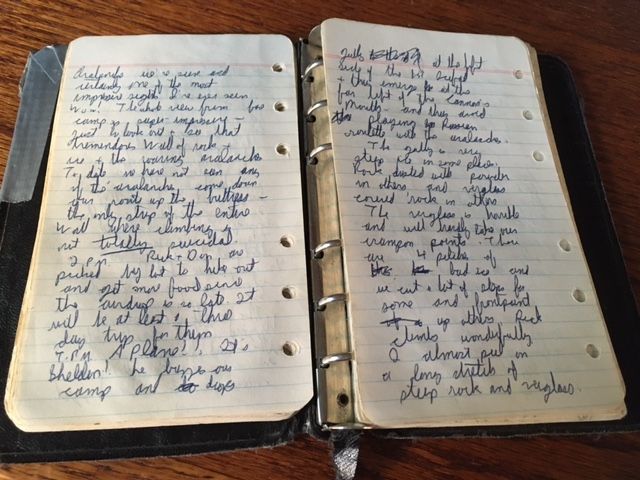 Avalanche we've seen and
certainly one of the most
impressive sights I've ever seen
Wow! The whole view from base
camp is super impressive -
just to look out & see that
tremendous Wall of rock
ice & the roaring avalanches
To date we have not seen any
of the avalanches come down
your front up the buttress -
the only strip of the entire
Wall where climbing is
not totally suicidal.
2 P.M. Rick + Dan are
packed to hike out
and get more food since
the airdrop is so late. It
will be at least a three
day trip for them
7 P.M. A Plane!! It's
Sheldon! he buzzes our
camp and drops
gully at the left
side of the 1st
& they emerge at the
far left of the Cannon's
Mouth - and they avoid
playing Russian
roulette with the avalanches.
The gully is very
steep ice in some places,
Rock dusted with powder
in others and verglass
covered rock in others
The verglass is horrible
and will hardly take our
crampon points. There
are 4 pitches of
bad ice and
we cut a lot of steps for
some and frontpoint
up others. Rick
climbs wonderfully
I almost peel on
a long stretch of
steep rock and verglass.